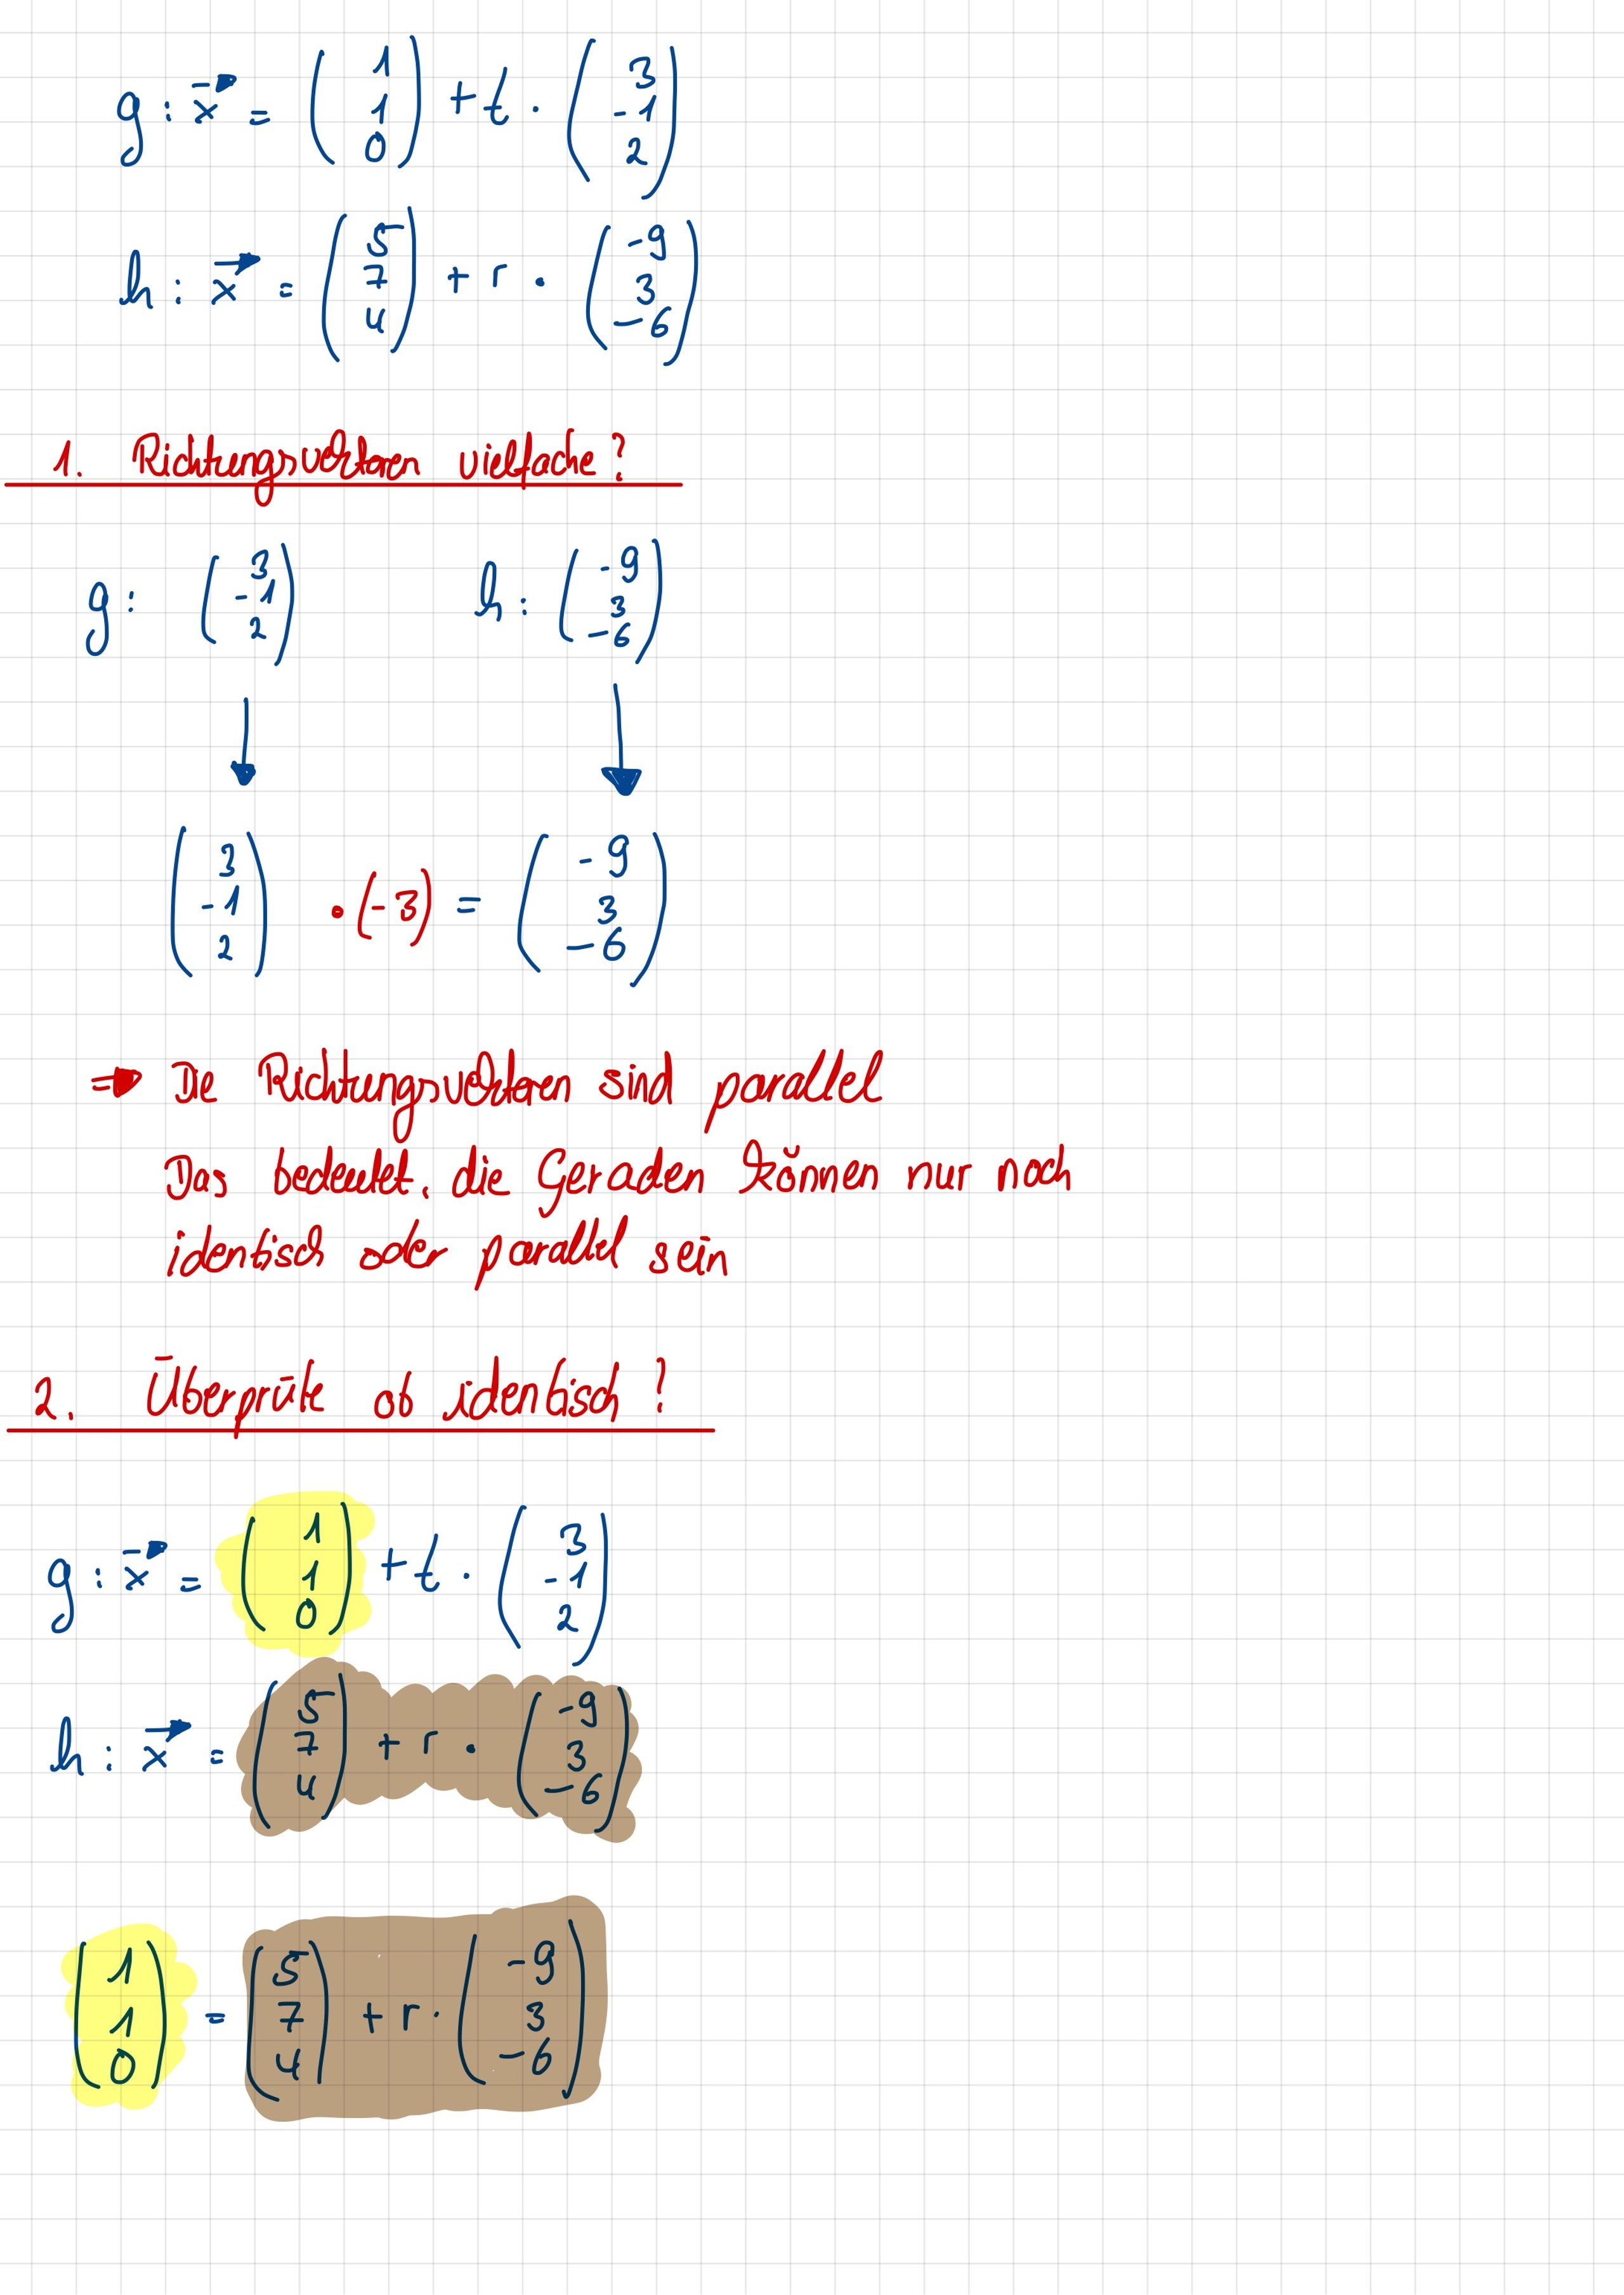 g: x⃗ = (1 1 0) + t · (3 -1 2)
h: x⃗ = (5 7 4) + r · (-9 3 -6)
1. Richtungsvektoren vielfache?
g: (3 -1 2) h: (-9 3 -6)
(3 -1 2) · (-3) = (-9 3 -6)
⇒ Die Richtungsvektoren sind parallel
Das bedeutet, die Geraden können nur noch
identisch oder parallel sein
2. Überprüfe ob identisch?
g: x⃗ = (1 1 0) + t · (3 -1 2)
h: x⃗ = (5 7 4) + r · (-9 3 -6)
(1 1 0) = (5 7 4) + r · (-9 3 -6)